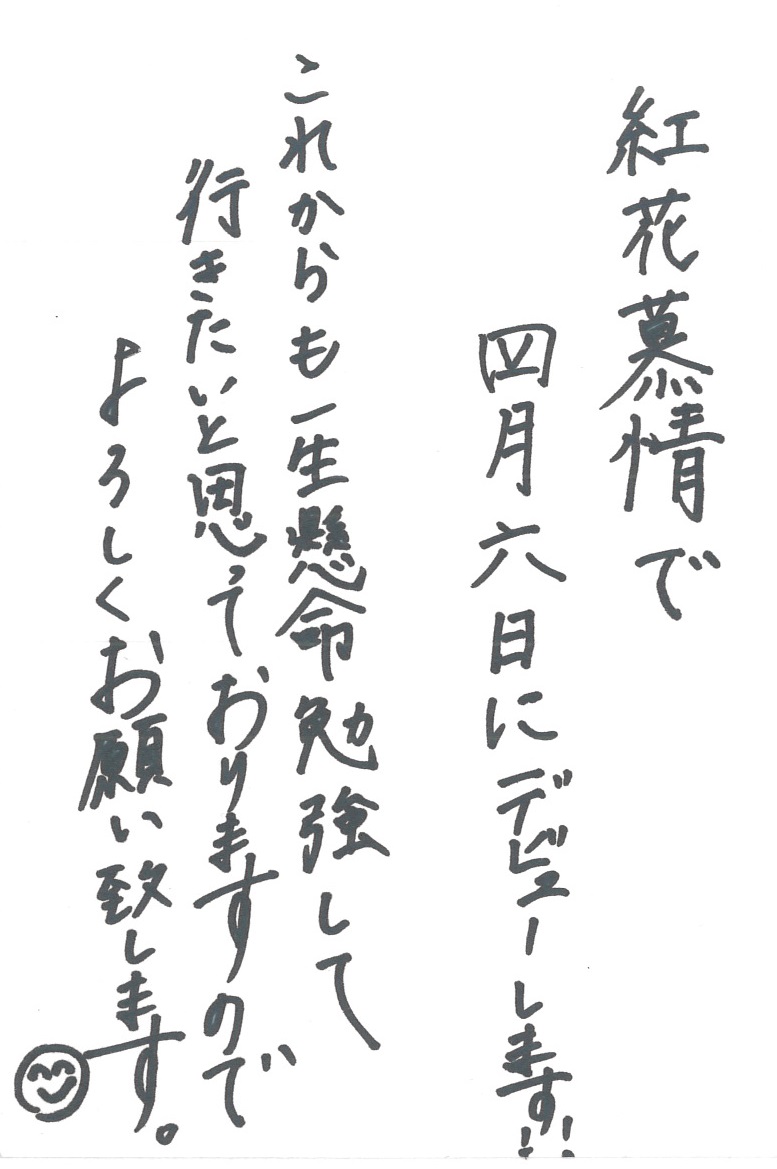 紅花慕情で
四月六日にデビューします!!
これからも一生懸命勉強して
行きたいと思っておりますので
よろしくお願い致します。